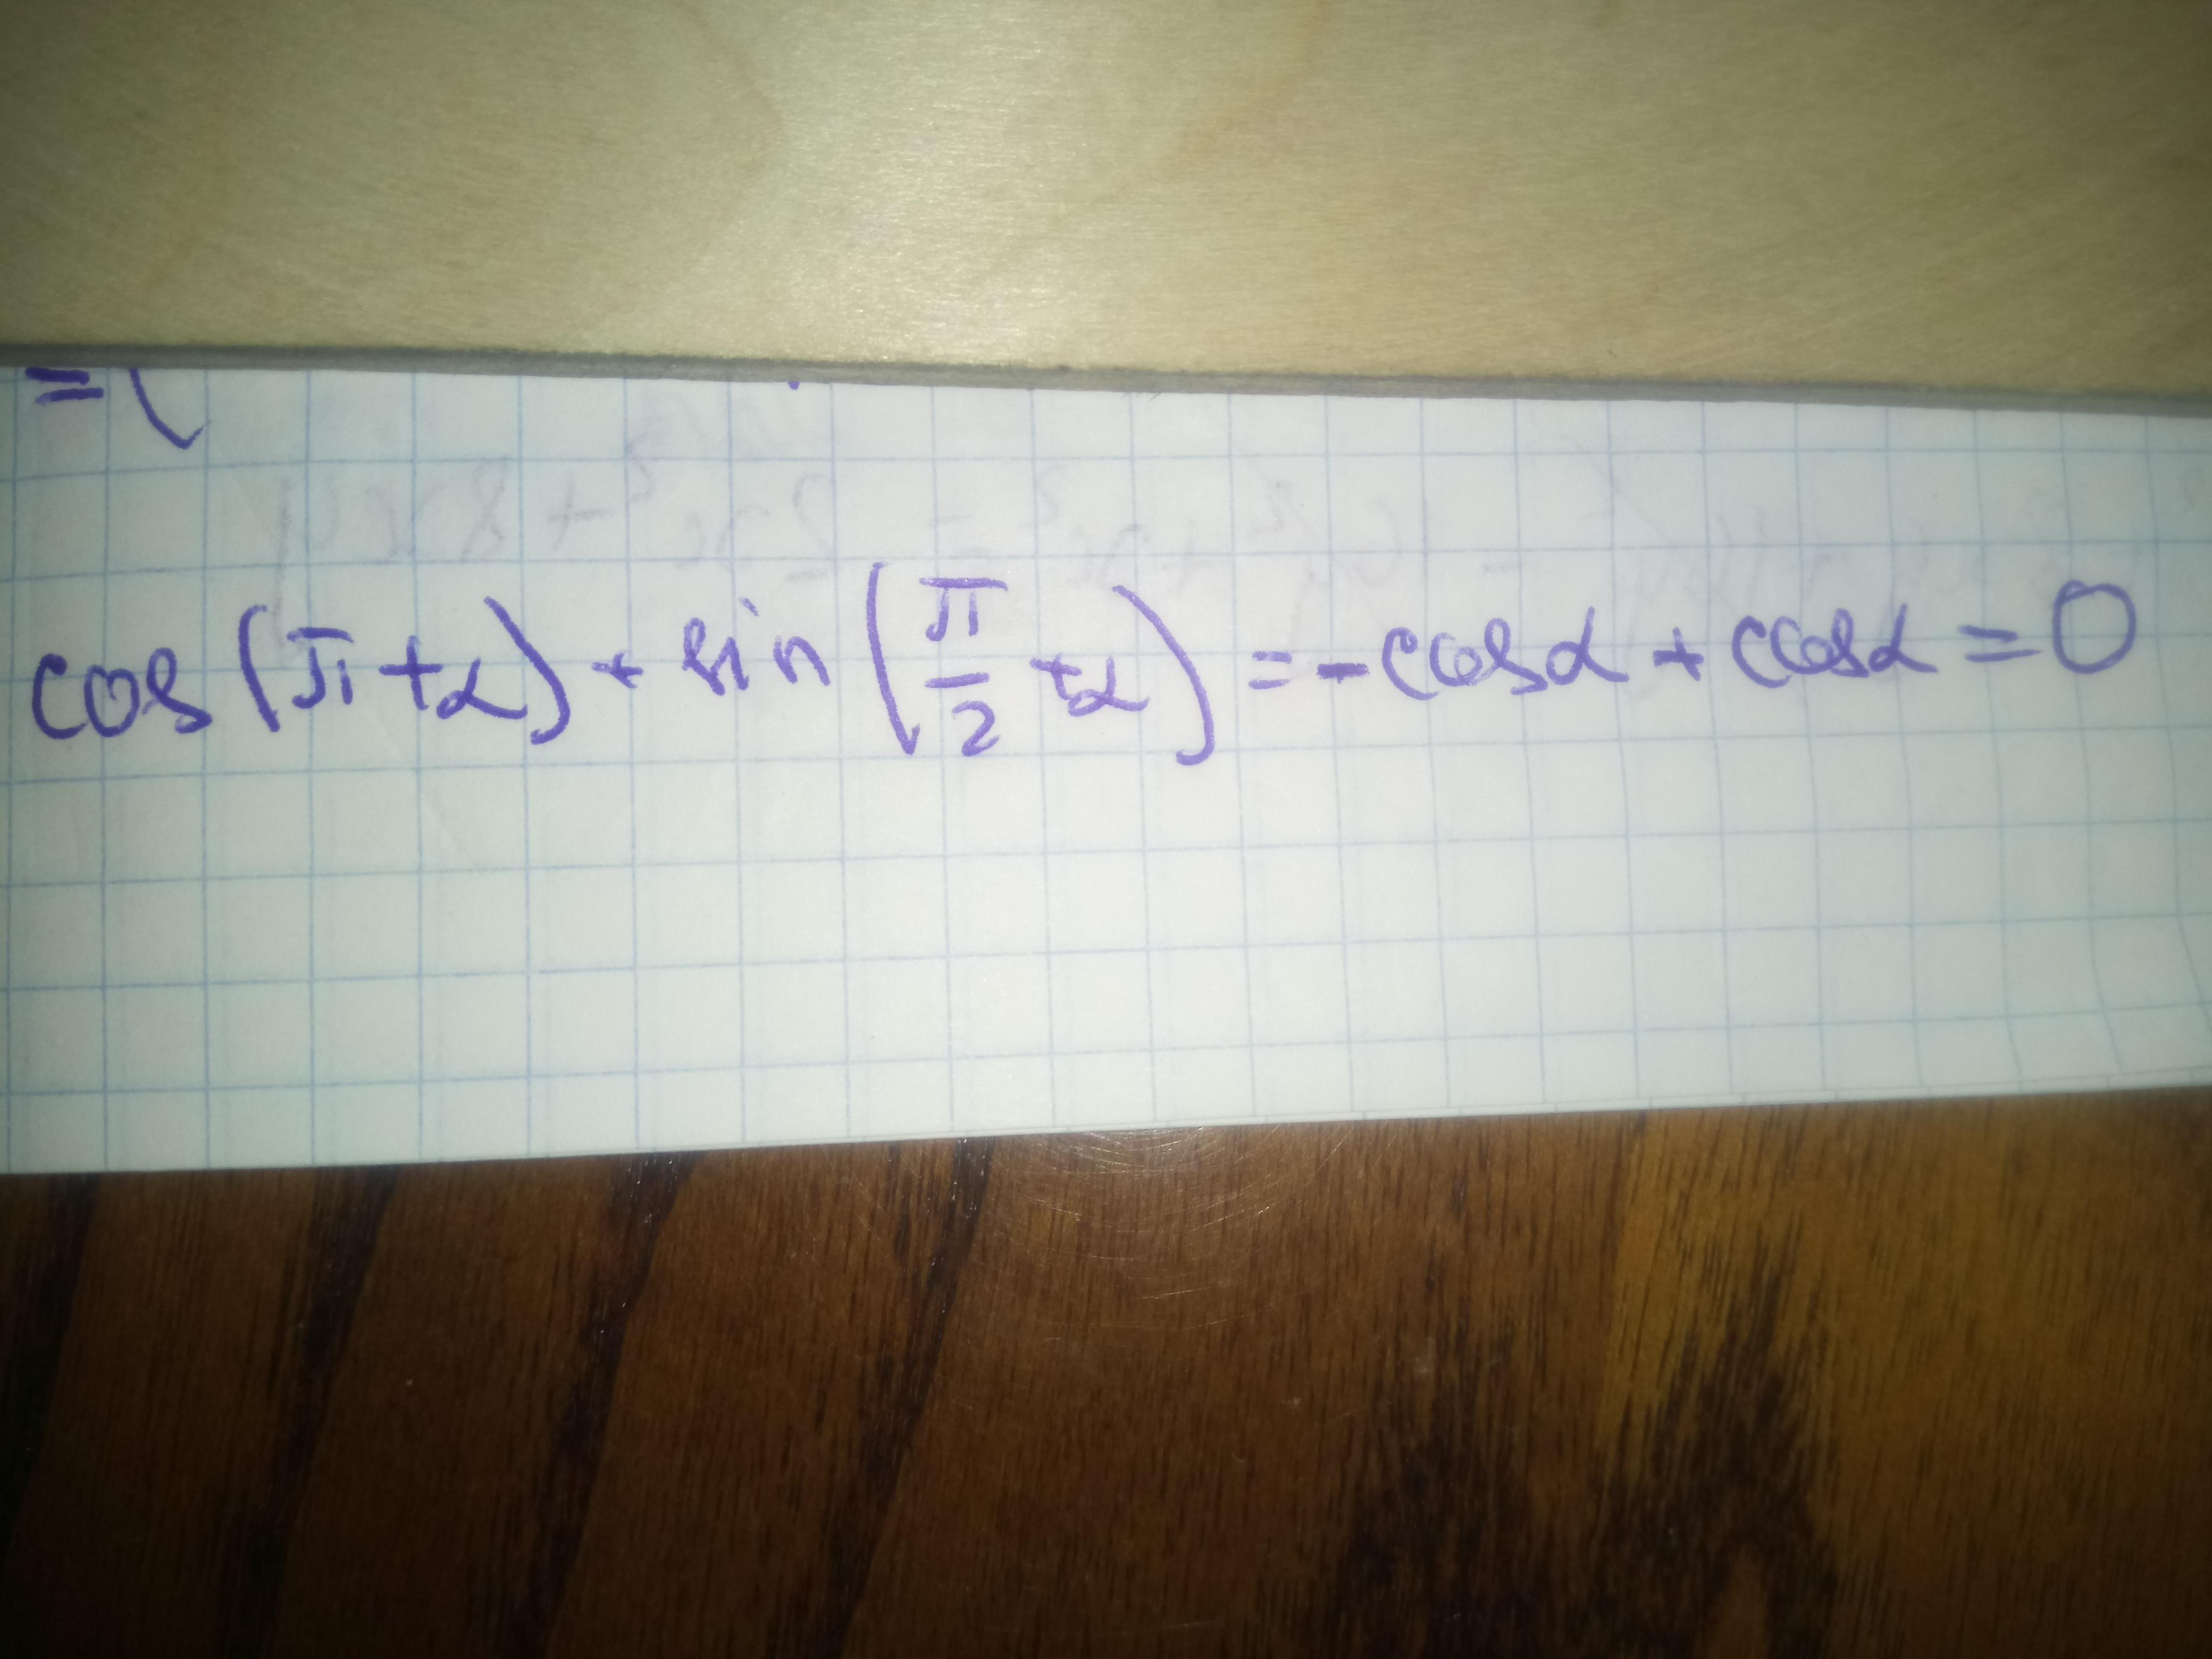 =(
cos(π+α)+sin(π/2+α)=-cosα+cosα=0